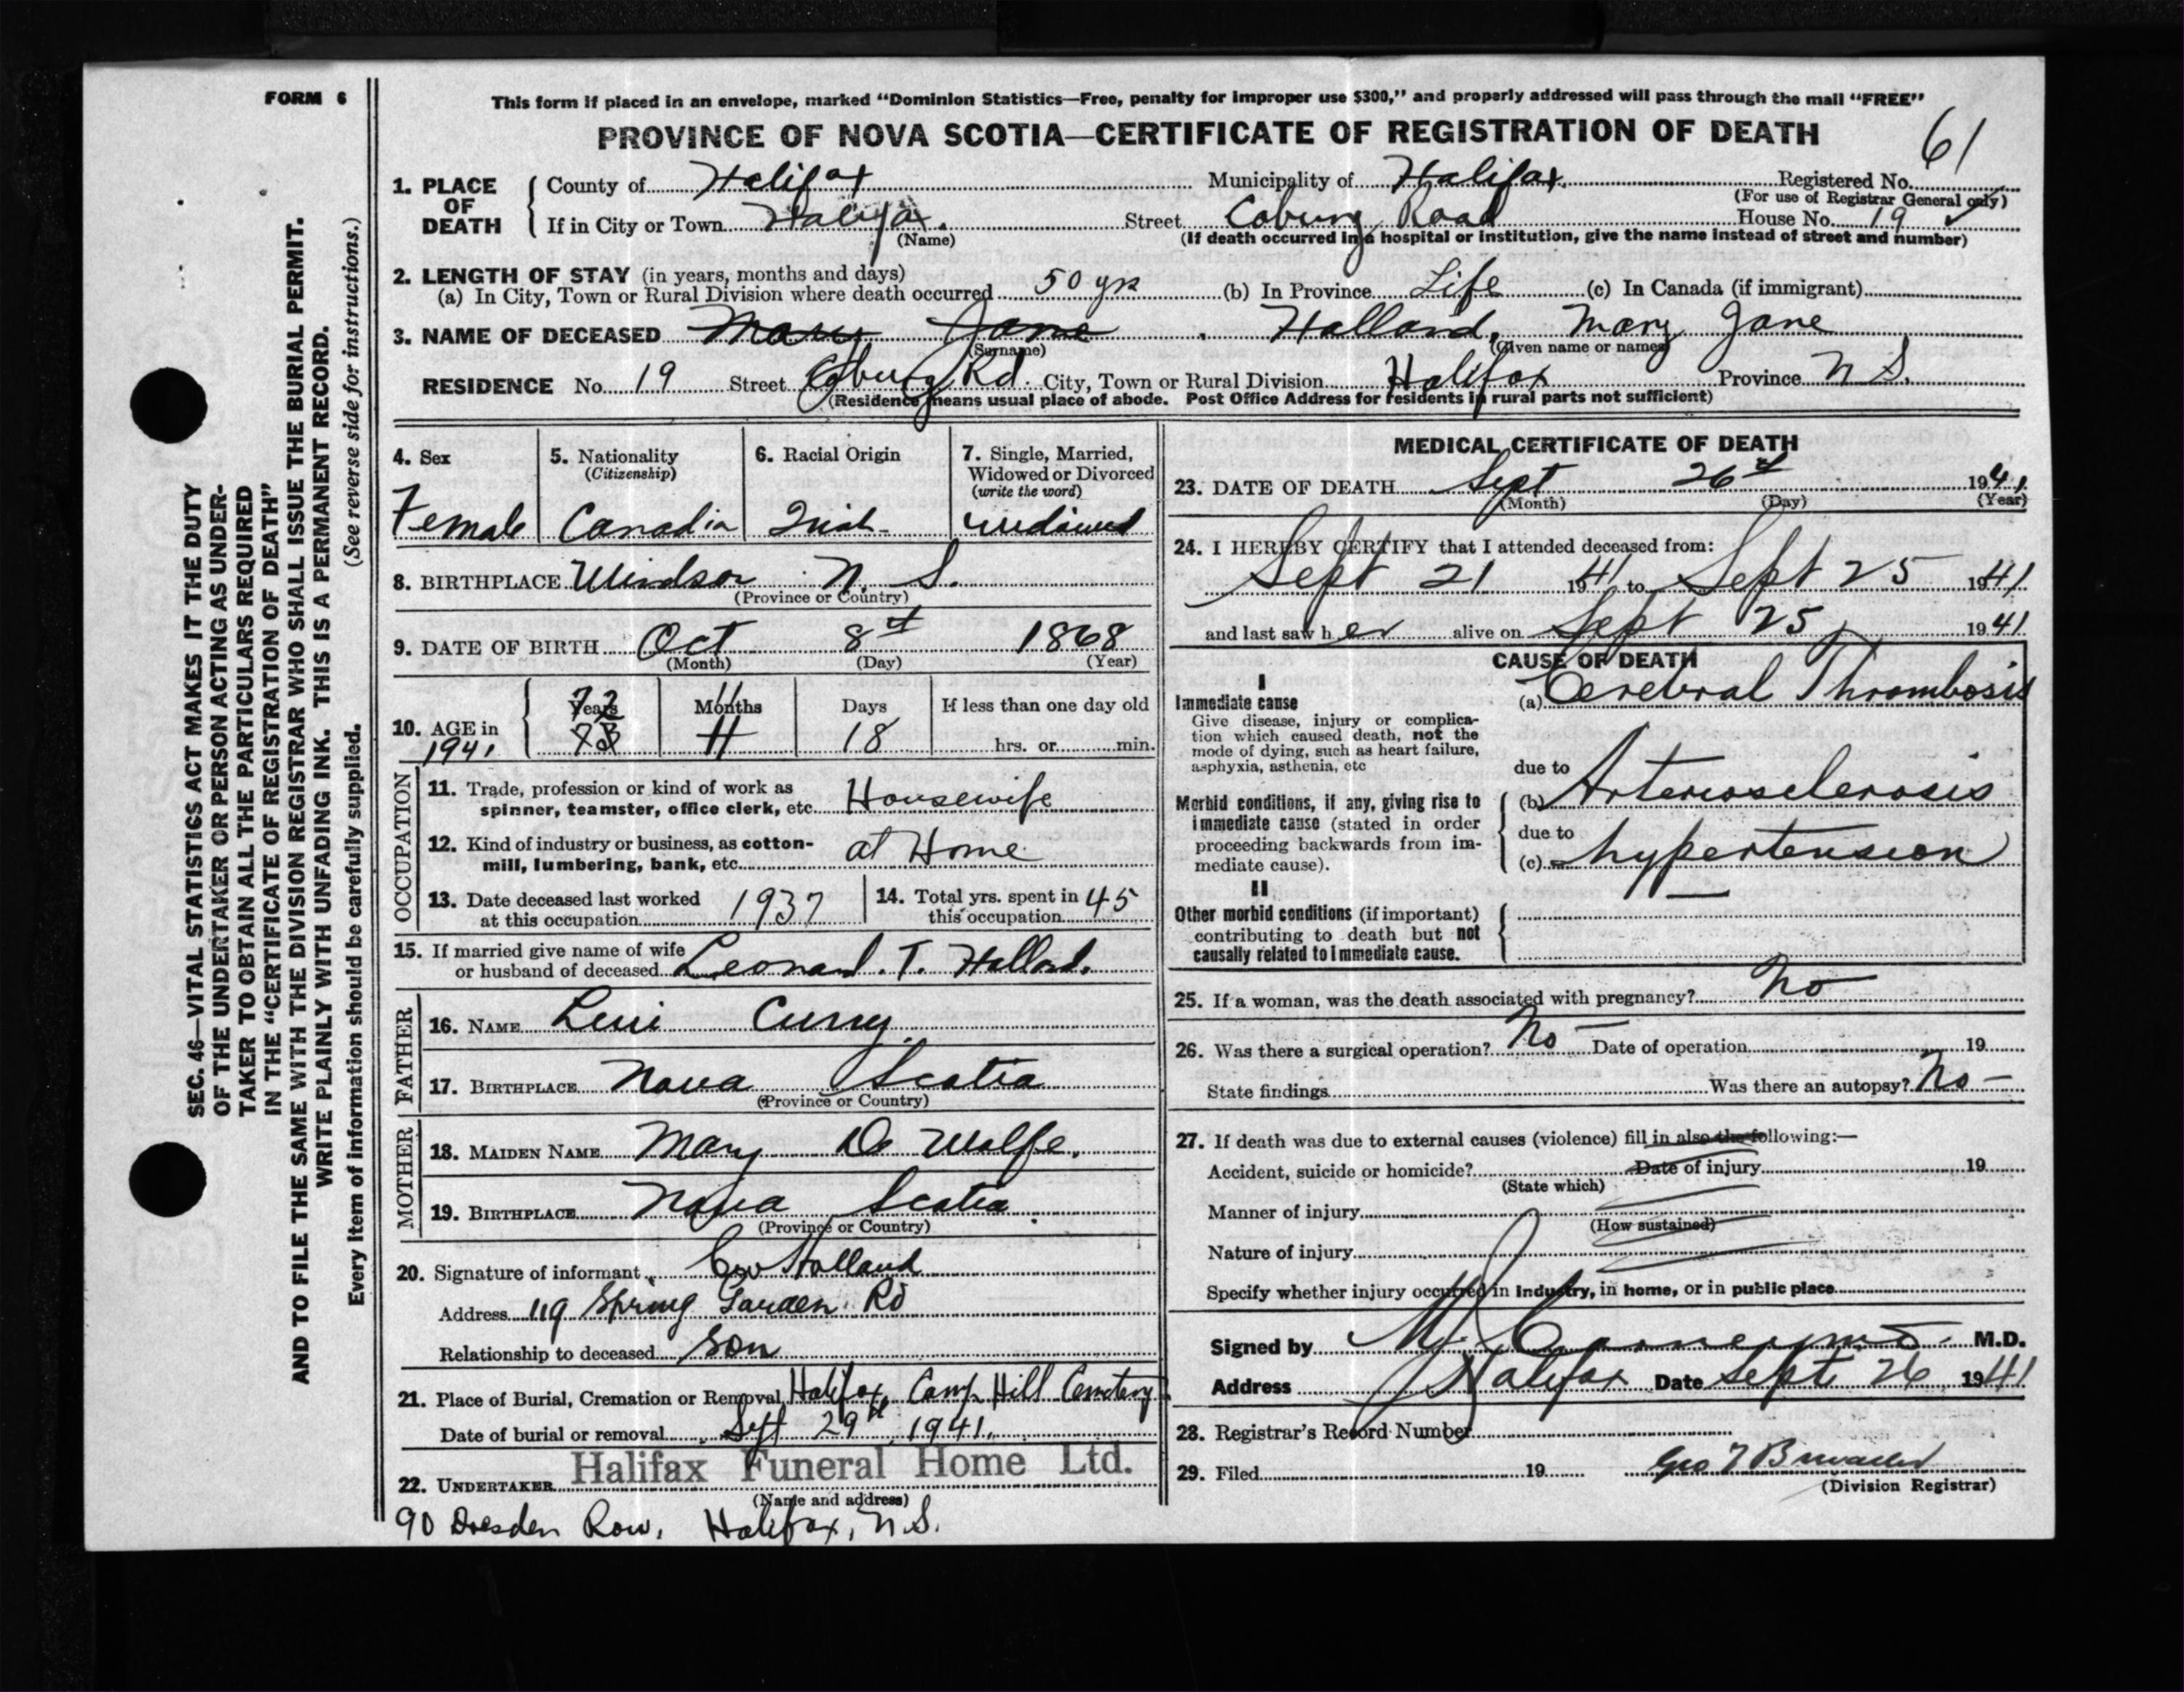 FORM 6
This form if placed in an envelope, marked "Dominion Statistics—Free, penalty for improper use $300," and properly addressed will pass through the mail "FREE"
PROVINCE OF NOVA SCOTIA—CERTIFICATE OF REGISTRATION OF DEATH
61
1. PLACE OF DEATH
County of Halifax Municipality of Halifax Registered No.
(For use of Registrar General only)
If in City or Town Halifax. Street Coburg Road House No. 19 ✓
(Name) (If death occurred in a hospital or institution, give the name instead of street and number)
2. LENGTH OF STAY (in years, months and days)
(a) In City, Town or Rural Division where death occurred 50 yrs (b) In Province Life (c) In Canada (if immigrant)
3. NAME OF DECEASED Mary Jane . Holland, Mary Jane
(Surname) (Given name or names)
RESIDENCE No. 19 Street Coburg Rd. City, Town or Rural Division Halifax Province N.S.
(Residence means usual place of abode. Post Office Address for residents in rural parts not sufficient)
4. Sex
Female
5. Nationality
(Citizenship)
Canadia
6. Racial Origin
Irish
7. Single, Married,
Widowed or Divorced
(write the word)
widowed
8. BIRTHPLACE Windsor N. S.
(Province or Country)
9. DATE OF BIRTH Oct 8th 1868
(Month) (Day) (Year)
10. AGE in 1941
Years 72 73
Months 11 11
Days 18
If less than one day old
hrs. or min.
OCCUPATION
11. Trade, profession or kind of work as
spinner, teamster, office clerk, etc. Housewife
12. Kind of industry or business, as cotton-
mill, lumbering, bank, etc. at Home
13. Date deceased last worked
at this occupation 1937
14. Total yrs. spent in
this occupation 45
15. If married give name of wife
or husband of deceased Leonard. T. Holland.
FATHER
16. NAME Curry
17. BIRTHPLACE Nova Scotia
(Province or Country)
MOTHER
18. MAIDEN NAME Mary De Wolfe.
19. BIRTHPLACE Nova Scotia
(Province or Country)
20. Signature of informant Holland
Address 119 Spring Garden Rd
Relationship to deceased son
21. Place of Burial, Cremation or Removal Halifax, Camp Hill Cemetery
Date of burial or removal Sept 29th 1941.
22. UNDERTAKER Halifax Funeral Home Ltd.
(Name and address)
90 Dresden Row, Halifax, N.S.
MEDICAL CERTIFICATE OF DEATH
23. DATE OF DEATH Sept 26th 1941
(Month) (Day) (Year)
24. I HEREBY CERTIFY that I attended deceased from:
Sept 21 1941 to Sept 25 1941
and last saw h er alive on Sept 25 1941
CAUSE OF DEATH
I
Immediate cause
Give disease, injury or complica-
tion which caused death, not the
mode of dying, such as heart failure,
asphyxia, asthenia, etc
(a) Cerebral Thrombosis
due to
Morbid conditions, if any, giving rise to
immediate cause (stated in order
proceeding backwards from im-
mediate cause).
(b) Arteriosclerosis
due to
(c) hypertension
II
Other morbid conditions (if important)
contributing to death but not
causally related to immediate cause.
25. If a woman, was the death associated with pregnancy? No
26. Was there a surgical operation? No Date of operation 19
State findings Was there an autopsy? No
27. If death was due to external causes (violence) fill in also the following:—
Accident, suicide or homicide? Date of injury 19
(State which)
Manner of injury
(How sustained)
Nature of injury
Specify whether injury occurred in industry, in home, or in public place
Signed by M.D.
Address Halifax Date Sept. 26 1941
28. Registrar's Record Number
29. Filed 19
(Division Registrar)
SEC. 46—VITAL STATISTICS ACT MAKES IT THE DUTY
OF THE UNDERTAKER OR PERSON ACTING AS UNDER-
TAKER TO OBTAIN ALL THE PARTICULARS REQUIRED
IN THE "CERTIFICATE OF REGISTRATION OF DEATH"
AND TO FILE THE SAME WITH THE DIVISION REGISTRAR WHO SHALL ISSUE THE BURIAL PERMIT.
WRITE PLAINLY WITH UNFADING INK. THIS IS A PERMANENT RECORD.
Every item of information should be carefully supplied. (See reverse side for instructions.)